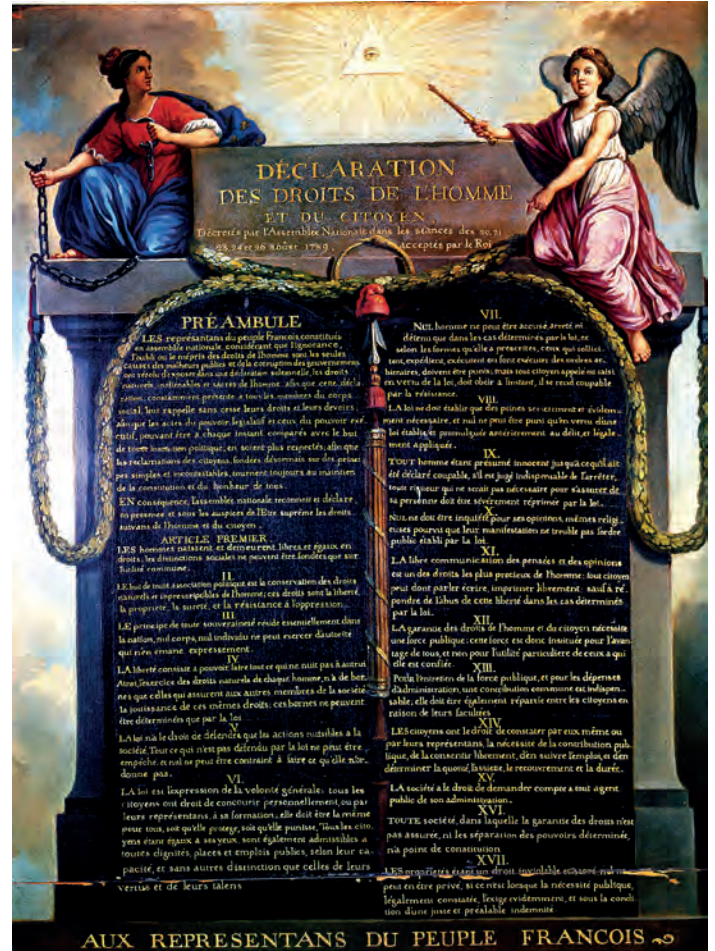 DÉCLARATION
DES DROITS DE L'HOMME
ET DU CITOYEN,
Décretés par l'Assemblée Nationale dans les séances des 20, 21
23, 24 et 26 août 1789, acceptés par le Roi
PRÉAMBULE
LES représentans du peuple Francois, constitués
en assemblée nationale, considérant que l'ignorance,
l'oubli ou le mépris des droits de l'homme sont les seules
causes des malheurs publics et de la corruption des gouvernemens
ont résolu d'exposer dans une déclaration solemnelle, les droits
naturels, inaliénables et sacrés de l'homme; afin que cette décla
ration, constamment présente a tous les membres du corps
social, leur rappelle sans cesse leurs droits et leurs devoirs,
afin que les actes du pouvoir législatif et ceux du pouvoir exé
cutif, pouvant être a chaque instant comparés avec le but
de toute institution politique, en soient plus respectés; afin que
les reclamations des citoyens, fondées désormais sur des princi
pes simples et incontestables, tournent toujours au maintien
de la constitution et du bonheur de tous.
EN conséquence, l'assemblée nationale reconnoit et déclare,
en presence et sous les auspices de l'Etre suprême les droits
suivans de l'homme et du citoyen.
ARTICLE PREMIER.
LES hommes naissent et demeurent libres et égaux en
droits, les distinctions sociales ne peuvent être fondées que sur
l'utilité commune.
II.
LE but de toute association politique est la conservation des droits
naturels et inprescriptibles de l'homme; ces droits sont la liberté,
la propriété, la sureté, et la résistance à l'oppression.
III.
LE principe de toute souveraineté réside essentiellement dans
la nation, nul corps, nul individu ne peut exercer d'autorité
qui n'en émane expressement.
IV.
LA liberté consiste a pouvoir faire tout ce qui ne nuit pas à autrui
Ainsi, l'exercice des droits naturels de chaque homme, n'a de bor-
nes que celles qui assurent aux autres membres de la société
la jouissance de ces mêmes droits; ces bornes ne peuvent
être déterminées que par la loi
V.
LA loi n'a le droit de défendre que les actions nuisibles a la
société. Tout ce qui n'est pas défendu par la loi ne peut être
empêché, et nul ne peut être contraint à faire ce qu'elle n'or-
donne pas.
VI.
LA loi est l'expression de la volonté générale; tous les
citoyens ont droit de concourir personnellement, ou par
leurs représentans, à sa formation; elle doit être la même
pour tous, soit qu'elle protege, soit qu'elle punisse, Tous les cito
yens étant égaux a ses yeux, sont également admissibles a
toutes dignités, places et emplois publics, selon leur ca
pacité, et sans autres distinction que celles de leurs
vertus et de leurs talens
VII.
NUL homme ne peut être accusé, arreté ni
détenu que dans les cas déterminés par la loi, et
selon les formes qu'elle a prescrites, ceux qui sollici-
tent, expédient, exécutent ou font exécuter des ordres ar-
bitraires, doivent être punis; mais tout citoyen appelé ou saisi
en vertu de la loi, doit obéir a l'instant, il se rend coupable
par la résistance.
VIII.
LA loi ne doit établir que des peines strictement et évidem-
ment nécessaire, et nul ne peut être puni qu'en vertu d'une
loi établie et promulguée antérierement au délit, et légale-
ment appliquée.
IX.
TOUT homme étant présumé innocent jusqu'a ce qu'il ait
été déclaré coupable, s'il est jugé indispensable de l'arrêter,
toute rigueur qui ne serait pas nécessaire pour s'assurer de
sa personne doit être sévèrement réprimée par la loi.
X.
NUL ne doit être inquiété pour ses opinions, mêmes religi-
euses pourvu que leur manifestation ne trouble pas l'ordre
public établi par la loi.
XI.
LA libre communication des pensées et des opinions
est un des droits les plus precieux de l'homme: tout citoyen
peut dont parler écrire, imprimer librement: sauf à ré-
pondre de l'abus de cette liberté dans les cas déterminés
par la loi.
XII.
LA garantie des droits de l'homme et du citoyen nécessite
une force publique; cette force est donc instituée pour l'avan-
tage de tous, et non pour l'utilité particuliere de ceux a qui
elle est confiée.
XIII.
Pour l'entretien de la force publique, et pour les dépenses
d'administration, une contribution commune est indispen-
sable, elle doit être également répartie entre les citoyens en
raison de leurs facultées
XIV.
LES citoyens ont le droit de constater par eux même ou
par leurs représentans, la nécessité de la contribution pub-
lique, de la consentir librement, d'en suivre l'emploi, et d'en
déterminer la quotité, l'assiette, le recouvrement et la durée.
XV.
LA société a le droit de demander compte a tout agent
public de son administration.
XVI.
TOUTE société, dans laquelle la garantie des droits n'est
pas assurée, ni les séparation des pouvoirs déterminée,
n'a point de constitution
XVII.
LES proprietés étant un droit inviolable et sacré, nul ne
peut en être privé, si ce n'est lorsque la nécessité publique,
légalement constatée, l'exige evidemment, et sous la condi
tion d'une juste et préalable indemnité
AUX REPRESENTANS DU PEUPLE FRANCOIS